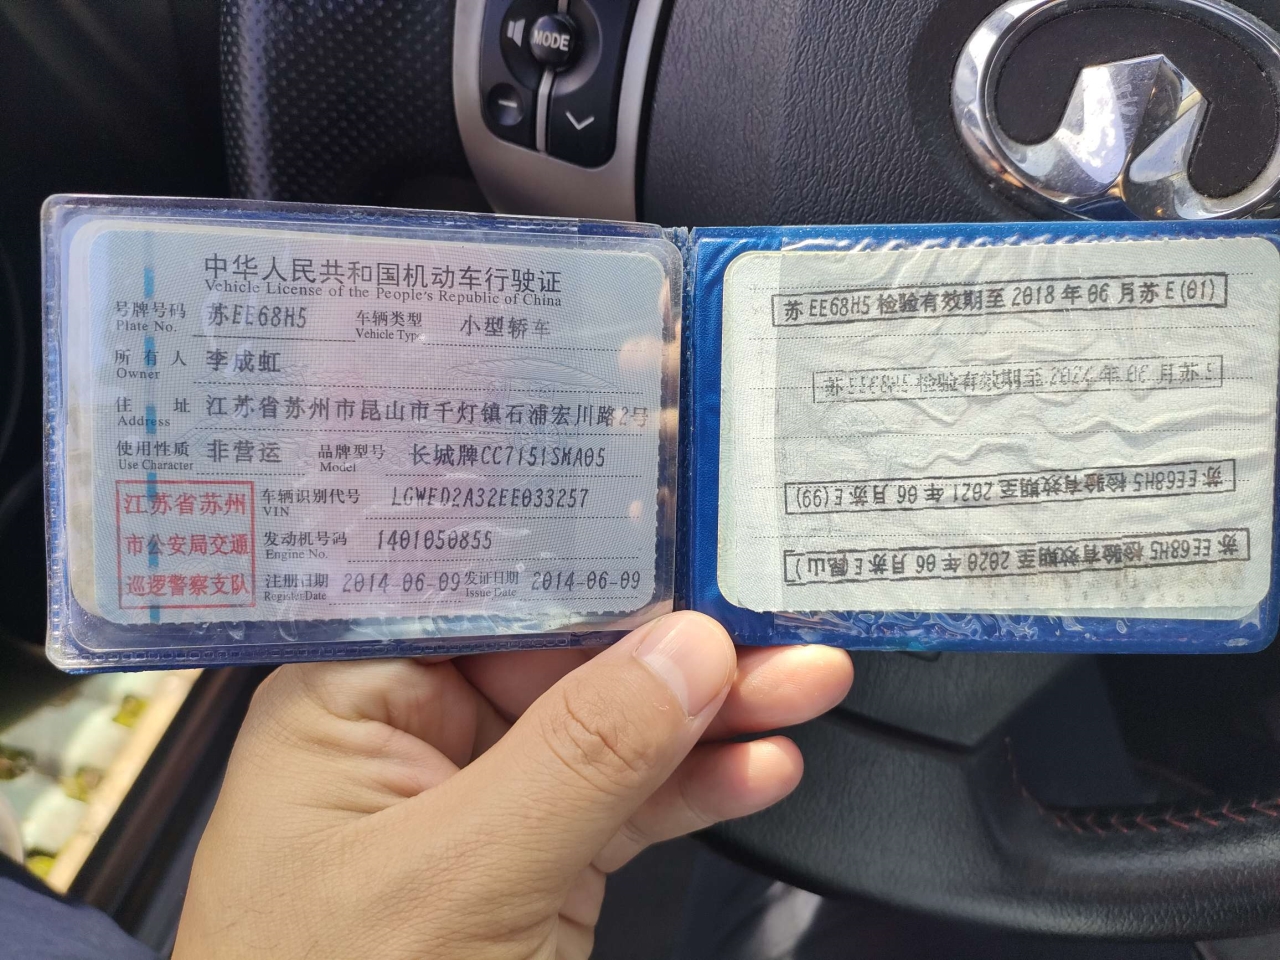 MODE
中华人民共和国机动车行驶证
Vehicle License of the People's Republic of China
号牌号码 苏EE68H5 车辆类型 小型轿车
Plate No. Vehicle Type
所有人 李成虹
Owner
住址 江苏省苏州市昆山市千灯镇石浦宏川路2号
Address
使用性质 非营运 品牌型号 长城牌CC7151SMA05
Use Character Model
江苏省苏州 车辆识别代号 LGWED2A32EE033257
VIN
市公安局交通 发动机号码 1401050855
Engine No.
巡逻警察支队 注册日期 2014-06-09 发证日期 2014-06-09
Register Date Issue Date
苏EE68H5检验有效期至2018年06月苏E(01)
检验有效期至
苏EE68H5检验有效期至2021年06月苏E(99)
苏EE68H5检验有效期至2020年06月苏E(昆山)